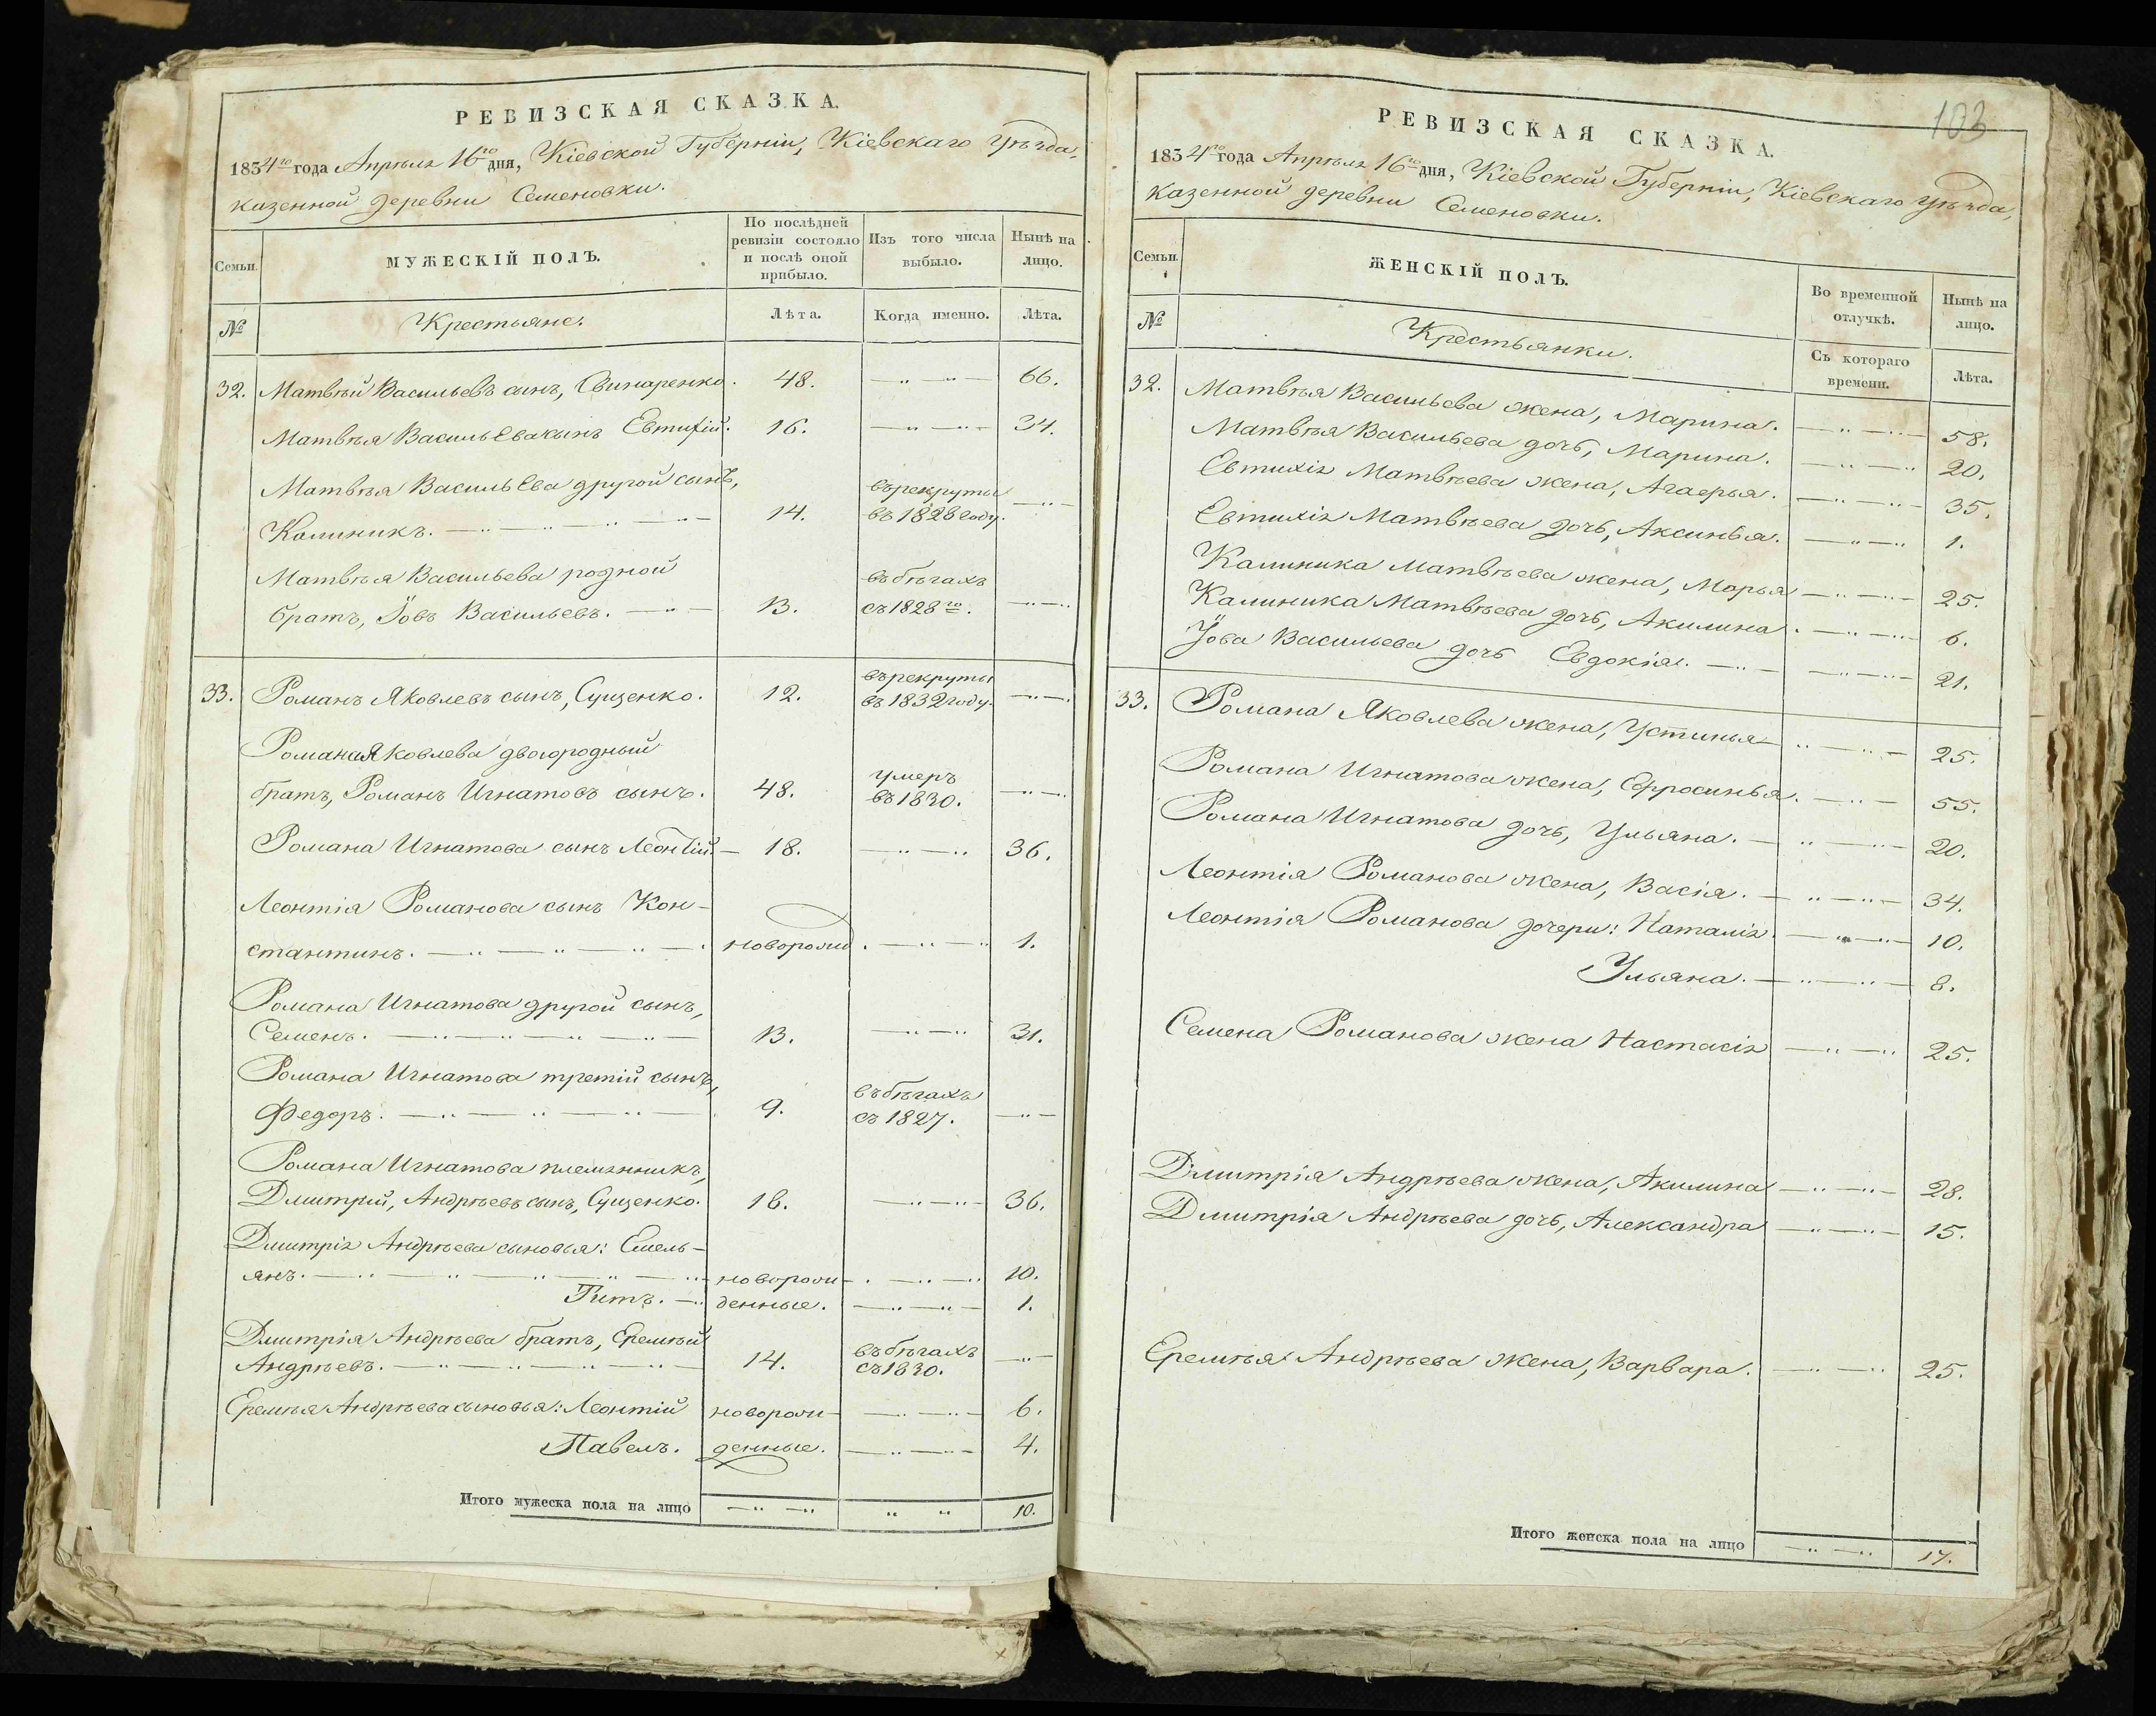 РЕВИЗСКАЯ СКАЗКА.
1834го года Апрѣля 16го дня, Кіевской Губерніи, Кіевскаго Уѣзда,
казенной деревни Семеновки.
Семьи. МУЖЕСКІЙ ПОЛЪ. По послѣдней ревизіи состояло и послѣ оной прибыло. Изъ того числа выбыло. Нынѣ на лицо.
№ Крестьяне. Лѣта. Когда именно. Лѣта.
32. Матвѣй Васильевъ сынъ, Свинаренко. 48. — „ — „ — 66.
Матвѣя Васильева сынъ Евтихій. 16. — „ — „ — 34.
Матвѣя Васильева другой сынъ, въ рекруты
Калиникъ. — „ — „ — „ — 14. въ 1828 году. — „ —
Матвѣя Васильева родной въ бѣгахъ
братъ, Іовъ Васильевъ. — „ — 13. съ 1828го. — „ — „
33. Романъ Яковлевъ сынъ, Сущенко. 12. въ рекруты въ 1832 году. — „ —
Романа Яковлева двоюродный умеръ
братъ, Романъ Игнатовъ сынъ. 48. въ 1830. — „ — „
Романа Игнатова сынъ Леонтій. — 18. — „ — „ 36.
Леонтія Романова сынъ Кон-
стантинъ. — „ — „ — „ — новорожд. — „ — „ 1.
Романа Игнатова другой сынъ,
Семенъ. — „ — „ — „ — 13. — „ — „ 31.
Романа Игнатова третій сынъ, въ бѣгахъ
Федоръ. — „ — „ — „ — 9. съ 1827. — „ —
Романа Игнатова племянникъ,
Дмитрій, Андрѣевъ сынъ, Сущенко. 18. — „ — „ — 36.
Дмитрія Андрѣева сыновья: Емель-
янъ. — „ — „ — „ — „ — новорож- — „ — „ 10.
Титъ. — „ денные. — „ — „ — 1.
Дмитрія Андрѣева братъ, Еремѣй въ бѣгахъ
Андрѣевъ. — „ — „ — „ — 14. съ 1830. — „ —
Еремѣя Андрѣева сыновья: Леонтій новорож- — „ — „ — 6.
Павелъ. денные. — „ — „ — 4.
Итого мужеска пола на лицо — „ — „ „ „ 10.
103
РЕВИЗСКАЯ СКАЗКА.
1834го года Апрѣля 16го дня, Кіевской Губерніи, Кіевскаго Уѣзда,
казенной деревни Семеновки.
Семьи. ЖЕНСКІЙ ПОЛЪ. Во временной отлучкѣ. Нынѣ на лицо.
№ Крестьянки. Съ котораго времени. Лѣта.
32. Матвѣя Васильева жена, Марина. — „ — „ — 58.
Матвѣя Васильева дочь, Марина. — „ — „ 20.
Евтихія Матвѣева жена, Агафья. — „ — „ — 35.
Евтихія Матвѣева дочь, Аксинья. — „ — „ 1.
Калиника Матвѣева жена, Марья — „ — „ — 25.
Калиника Матвѣева дочь, Акилина. — „ — „ 6.
Іова Васильева дочь Евдокія. — „ — — „ — „ — 21.
33. Романа Яковлева жена, Устинья — „ — „ — 25.
Романа Игнатова жена, Ефросинья. — „ — 55.
Романа Игнатова дочь, Ульяна. — „ — „ — 20.
Леонтія Романова жена, Васія. — „ — „ — 34.
Леонтія Романова дочери: Наталія. — „ — „ — 10.
Ульяна. — „ — „ — 8.
Семена Романова жена Настасія — „ — „ 25.
Дмитрія Андрѣева жена, Акилина — „ — „ — 28.
Дмитрія Андрѣева дочь, Александра — „ — „ — 15.
Еремѣя Андрѣева жена, Варвара. — „ — „ 25.
Итого женска пола на лицо — „ — „ 17.